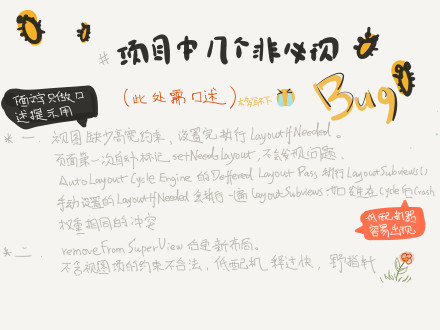 # 项目中几个非必现
Bug
画内容只做口
述提示用
(此处需口述)
* 一、视图缺少高宽约束，设置完执行 LayoutIfNeeded。
页面第一次自动标记 setNeedsLayout，不会出现问题、
Auto Layout Cycle Engine 的 Deffered Layout Pass 执行 LayoutSubviews()
手动设置的 LayoutIfNeeded 会执行一遍 LayoutSubviews，如 在 Cycle 后 Crash
权重相同的冲突
低配机器
容易出现
* 二、removeFromSuperView 的更新布局。
不含视图 的约束不合法，低配机 释放快，野指针